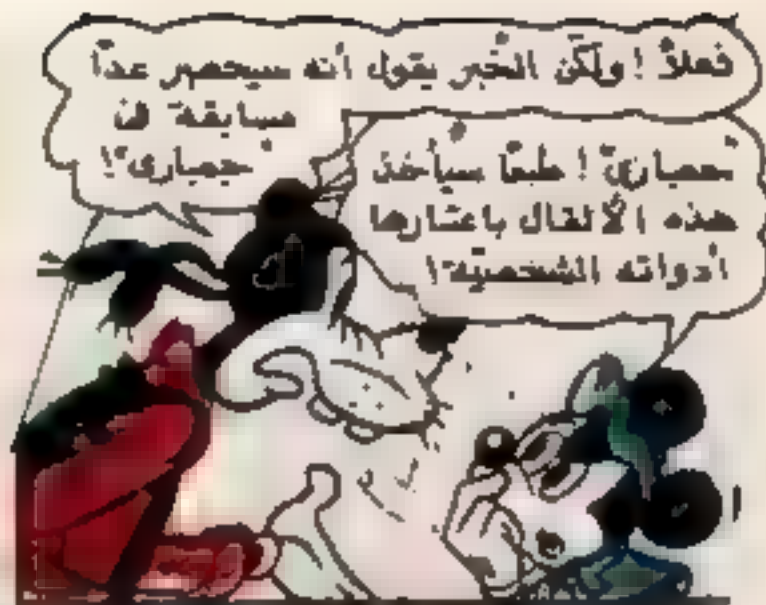 فعلاً ! ولكن الخبر يقول أنه سيحضر غدًا
مسابقة فى
"جمبارى"!
"جمبارى" ! طبعًا سيأخذ
هذه الأثقال باعتبارها
أدواته الشخصية !